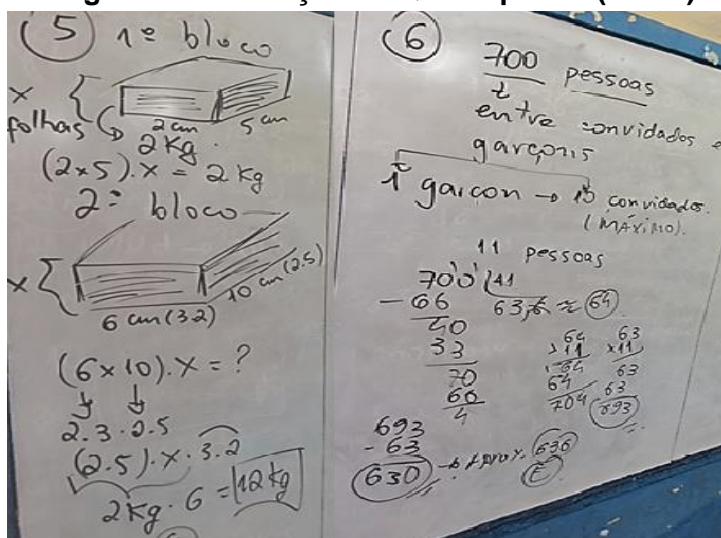 5 1º bloco
x
folhas
2 cm 5 cm
2 Kg.
(2x5).x = 2 Kg
2º bloco
x
6 cm (3.2) 10 cm (2.5)
(6x10).x = ?
2.3.2.5
(2.5).x.3.2
2Kg.6 = 12 kg
6
700 pessoas
entre convidados e
garçons
1 garçon → 10 convidados.
(MÁXIMO).
11 pessoas
700 11
-66 63,6 ≈ 64
40
33
70
66
4
64 63
x11 x11
64 63
64 63
704 693
693
-63
630 → Aprox. 636
E